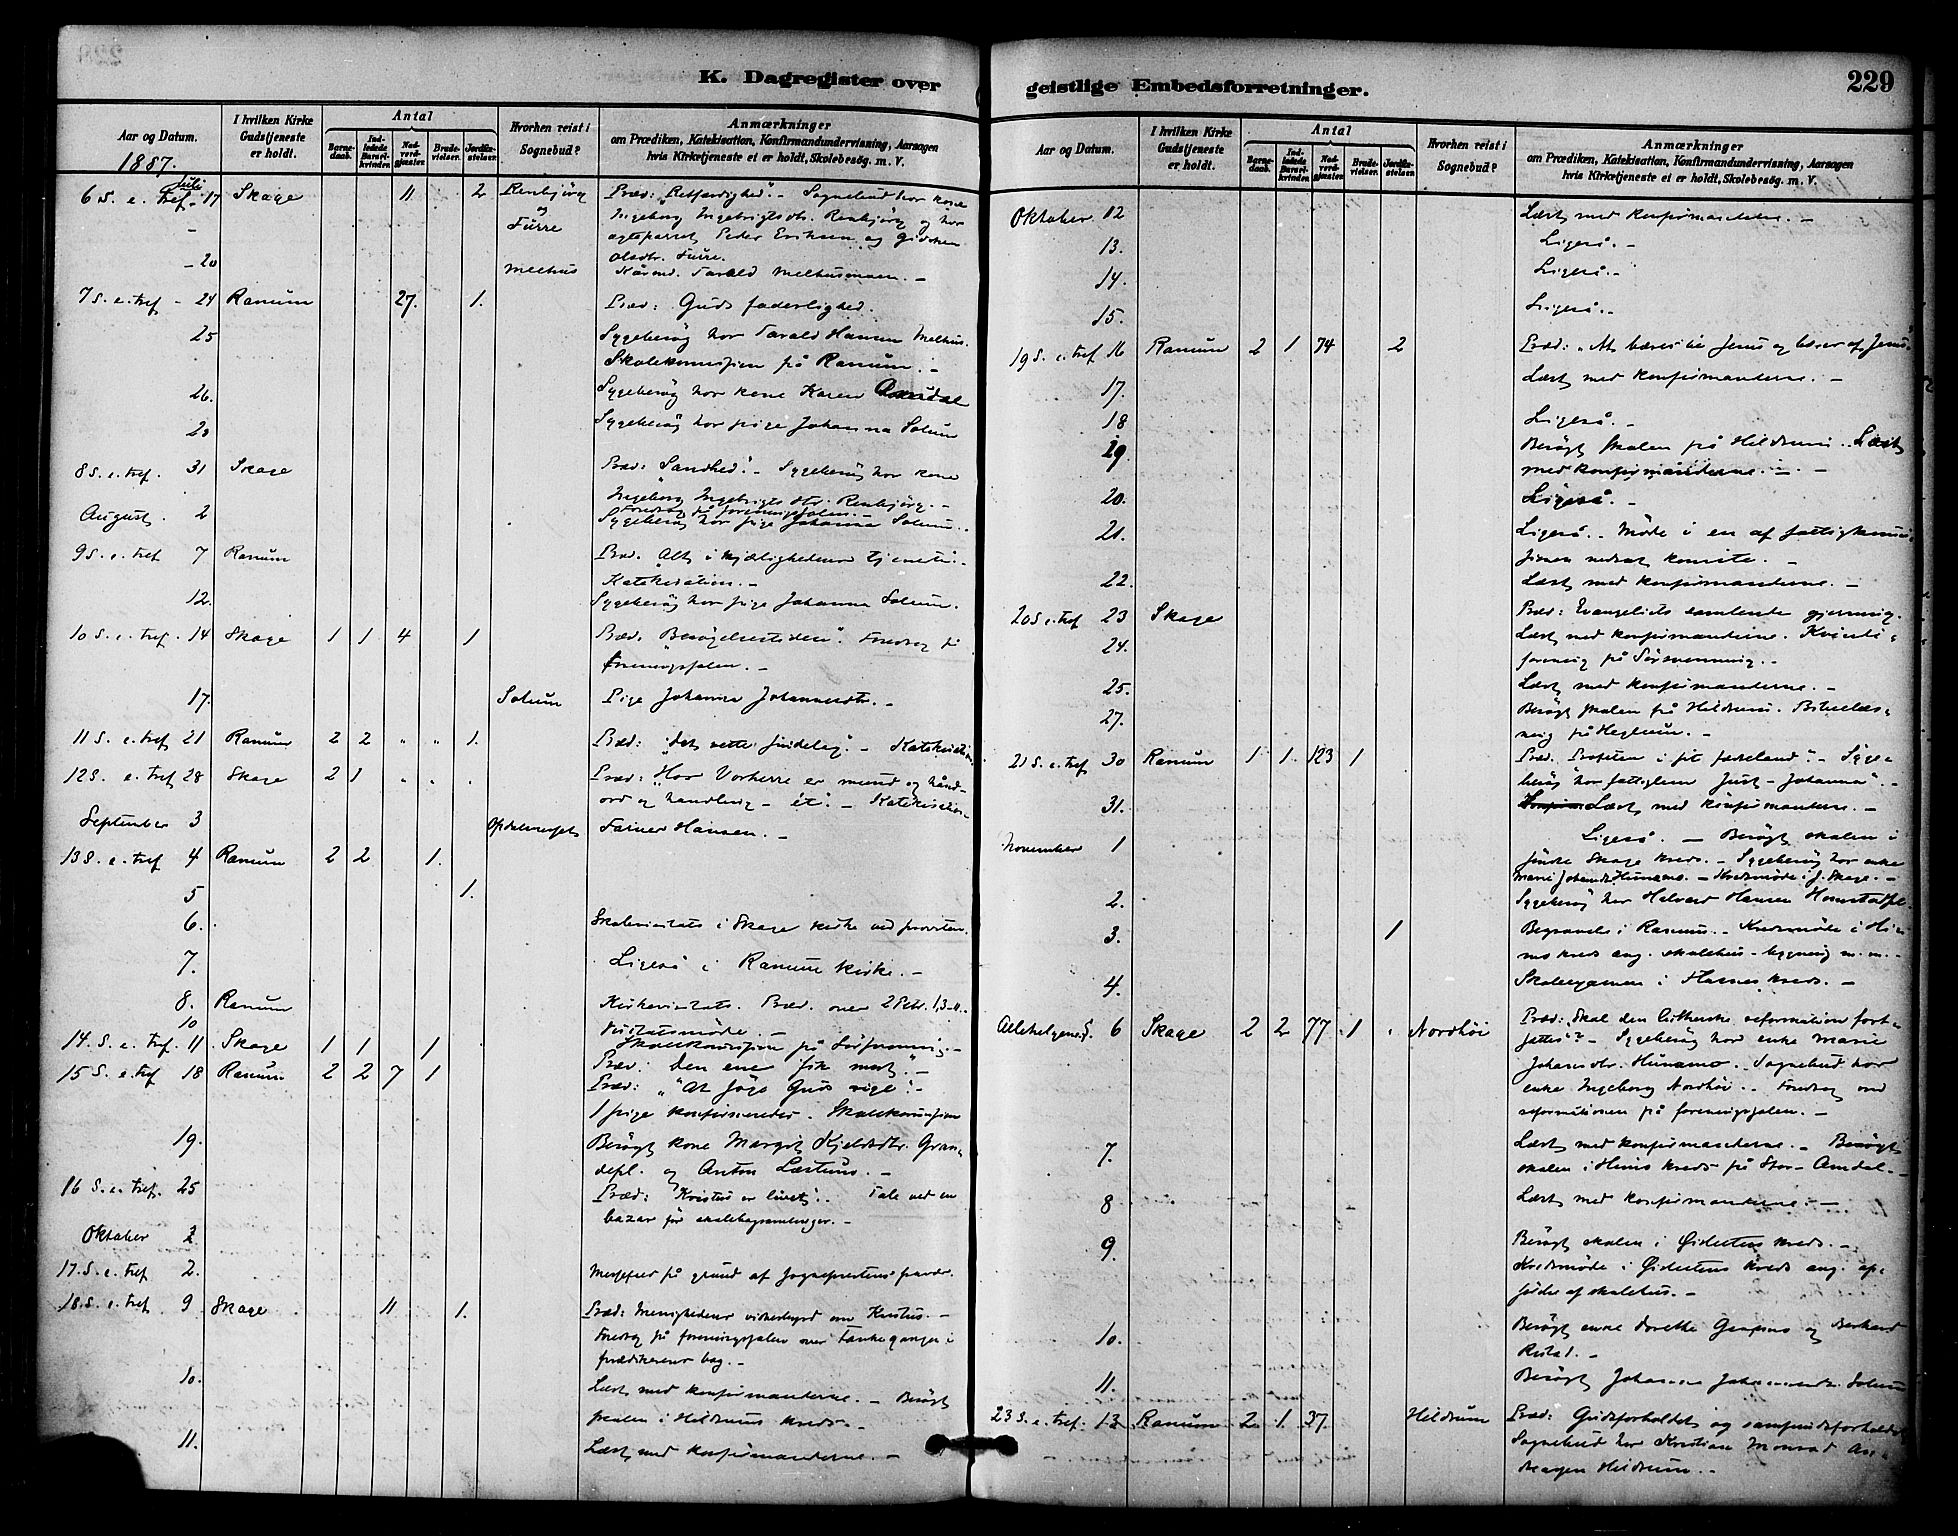 K. Dagregister over
Aar og Datum.
1887.
I hvilken Kirke Gudstjeneste er holdt.
Antal
Barnedaab.
Indledede Barselkvinder.
Nadvergjæster.
Brudevielser.
Jordfæstelser.
Hvorhen reist i Sognebud?
Anmærkninger
om Prædiken, Katekisation, Konfirmandundervisning, Aarsagen
hvis Kirketjeneste et er holdt, Skolebesøg. m. V.
6 S. e. Tref. Juli 17 Skage 11 2 Renbjørg Præd: "Retfærdighed". - Sognebud hos kone
og Ingeborg Ingebrigtsdtr. Renbjørg og hos
- Fürre egteparret Peder Eriksen og
Olsdtr. Fürre.
- 20 Melhus Tarald Melhusmoen. -
7 S. e. tref - 24 Ranum 27. 1. Præd: Guds faderlighed.
25 Sygebesøg hos Tarald Hansen Melhus.
Skolekomission på Ranum. -
26. Sygebesøg hos kone Karen
28 Sygebesøg hos pige Johanna Solum
8 S. e. tref. 31 Skage Præd: "Sandhed". - Sygebesøg hos kone
Ingeborg Ingebrigtsdtr. Renbjørg. -
Foredrag på foreningssalen. -
August 2 Sygebesøg hos pige Johanna Solum.
9 S. e. tref 7 Ranum Præd. Alt i kjærlighedens tjeneste. -
Katekisation. -
12. Sygebesøg hos pige Johanna Solum.
10 S. e. tref. 14 Skage 1 1 4 1 Præd. "Besøgelsestiden". Foredrag på
foreningssalen. -
17. Solum Pige Johanna Johannesdtr. -
11 S. e. tref 21 Ranum 2 2 " " 1. Præd: det rette sindelag". - Katekisation.
12 S. e. tref 28 Skage 2 1 . . . Præd: "Hos Vorherre er mund og hånd -
ord og handling - ét". - Katekisation -
September 3 Hansen. -
13 S. e. tref 4 Ranum 2 2 1.
5 1.
6. Skolevisitats i Skage kirke ved provsten.
7. Ligeså i Ranum kirke. -
8. Ranum Kirkevisitats. Præd. over 2 Petr. 1, 3-11.
Visitatsmøde. -
10 Skolekomission på
14. S. e. tref. 11 Skage 1 1 1 Præd: den ene fik mest". -
15 S. e. tref 18 Ranum 2 2 7 1 Præd: "At søge Guds rige". -
1 pige konfirmeredes. Skolekomission
19. Besøgt kone Margit
og Anton -
16 S. e. tref. 25 Præd: "Kristus er livet". Tale ved en
bazar for -
Oktober 2
17. S. e. tref 2. Messefald på grund af sognepræstens
18. S. e. tref 9 Skage 11 1. Præd: Menighedens vidnesbyrd om Kristus. -
Foredrag på foreningssalen over tankegangen i
prædikerens bog. -
10. Læst med konfirmanterne. - Besøgt
skolen i Hildrums kreds. -
11. Læst med konfirmanterne. -
geistlige Embedsforretninger.
229
Aar og Datum.
I hvilken Kirke Gudstjeneste er holdt.
Antal
Barnedaab.
Indledede Barselkvinder.
Nadvergjæster.
Brudevielser.
Jordfæstelser.
Hvorhen reist i Sognebud?
Anmærkninger
om Prædiken, Katekisation, Konfirmandundervisning, Aarsagen
hvis Kirketjeneste et er holdt, Skolebesøg. m. V.
Oktober 12 Læst med konfirmanderne. -
13. Ligeså. -
14. Ligeså. -
15. Ligeså. -
19 S. e. tref 16 Ranum 2 1 74 2 Præd: "At bæres til Jesus og bæres af Jesus".
17. Læst med konfirmanterne. -
18 Ligeså. -
19. Besøgt skolen på Hildrum. Læst
med konfirmanderne. -
20. Ligeså. -
21. Ligeså. - Møde i en af fattigkomis-
sionen nedsat komite. -
22. Læst med konfirmanterne. -
20 S. e. tref 23 Skage Præd: Evangeliets samlende gjerning.
24. Læst med konfirmanterne. Kvinde-
forening på -
25. Læst med konfirmanterne. -
27. Besøgt skolen på Hildrum. Bibellæs-
ning på -
21 S. e. tref 30 Ranum 1 1. 123 1 Præd. Profeten i sit fædreland". - Syge-
besøg hos fattiglem Just - Johanna". -
31. Læst med konfirmanterne. -
November 1 Ligeså. - Besøgt skolen i
Skage kreds. - Sygebesøg hos enke
Marie - Kredsmøde i Skage. -
2. Sygebesøg hos Halvard Hansen
3. 1 Begravelse i Ranum. - Kredsmøde i
kreds ang. skolehus-bygning m. m. -
4. i kreds. -
Allehelgens S. 6 Skage 2 2 77 1 . Nordhøi Præd: Skal den lutherske reformation fort-
sættes"? - Sygebesøg hos enke Marie
Sognebud hos
enke Ingeborg Nordhøi. - Foredrag om
reformationen på foreningssalen. -
7. Læst med konfirmanterne. - Besøgt
skolen i kreds på Stor-Amdal. -
8 Læst med konfirmanterne. -
9. Besøgt skolen i kreds. -
Kredsmøde i kreds ang. op-
af skolehus. -
10. Besøgt enke Dorethe og
-
11. Besøgt Johanna Johannesdtr. Solum
23 S. e. tref. 13 Ranum 2 1. 37. Hildrum Præd: Gudsforholdet og samfundsforholdet.
Sognebud hos
Hildrum. -